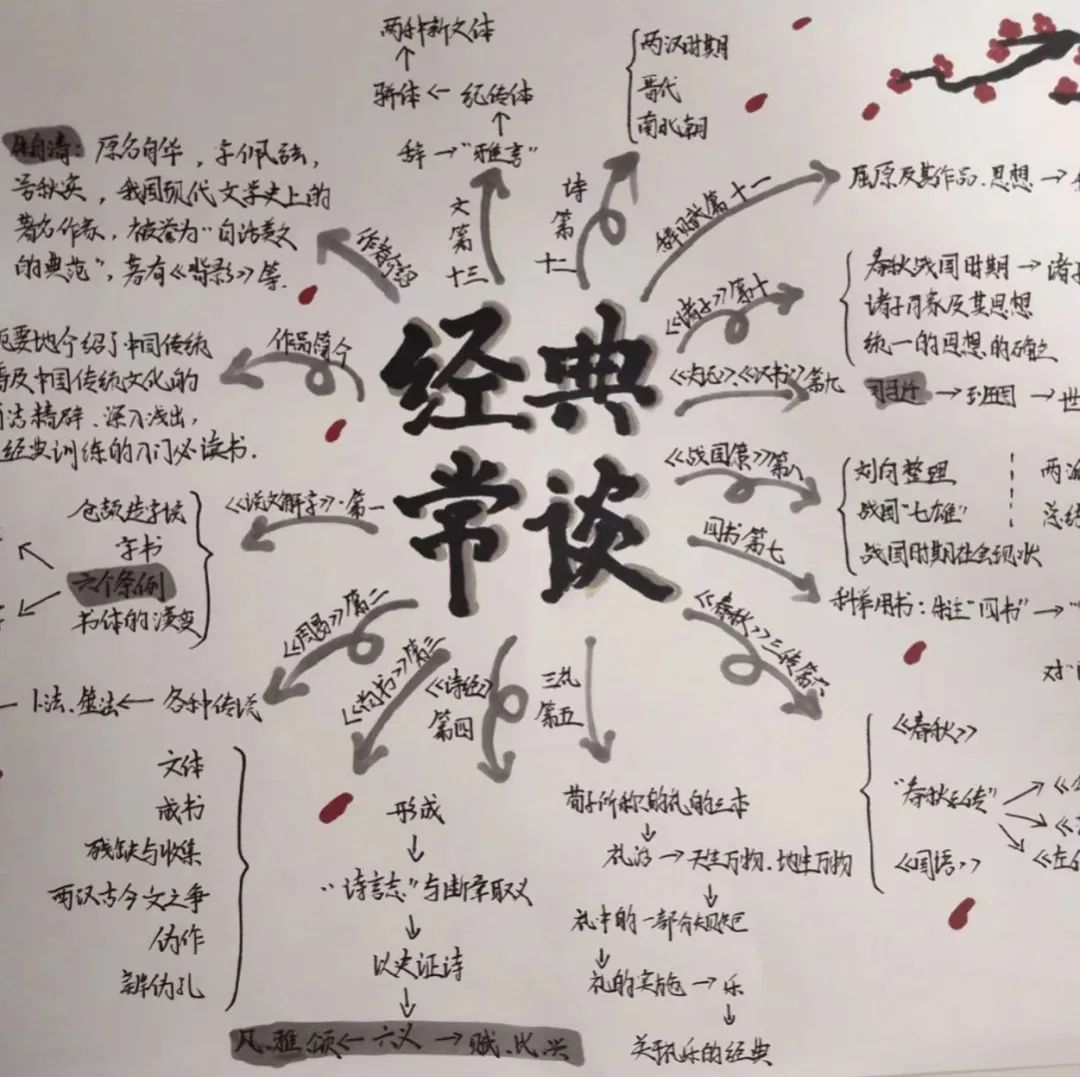 两种新文体
骈体 ← 纪传体
辞 → "雅言"
文第十三
两汉时期
晋代
南北朝
诗第十二
辞赋第十一
屈原及其作品、思想 →
朱自清：原名自华，字佩弦，
号秋实，我国现代文学史上的
著名作家，被誉为"白话美文
的典范"，著有《背影》等.
作者介绍
要地介绍了中国传统
及中国传统文化的
精辟、深入浅出，
经典训练的入门必读书.
作品简介
经典
常谈
《诸子》第十
春秋战国时期 → 诸
诸子百家及其思想
统一的思想的确立
《史记》、《汉书》第九
司马迁 → 班固 → 世
《战国策》第八
刘向整理
战国"七雄"
战国时期社会现状
两派
总结
四书第七
科举用书：朱注"四书" →
对
《春秋》三传第六
《春秋》
"春秋三传"
《国语》
《左
《说文解字》·第一
仓颉造字说
字书
六个条例
书体的演变
《周易》第二
卜法、筮法 ← 各种传说
《尚书》第三
文体
成书
残缺与收集
两汉古今文之争
伪作
辨伪孔
《诗经》第四
形成
↓
"诗言志"与断章取义
↓
以史证诗
↓
风、雅、颂 ← 六义 → 赋、比、兴
三礼第五
荀子所称的礼的三本
↓
礼治 → 天生万物、地生万物
↓
礼中的一部分规矩
↓
礼的实施 → 乐
↓
关于礼乐的经典